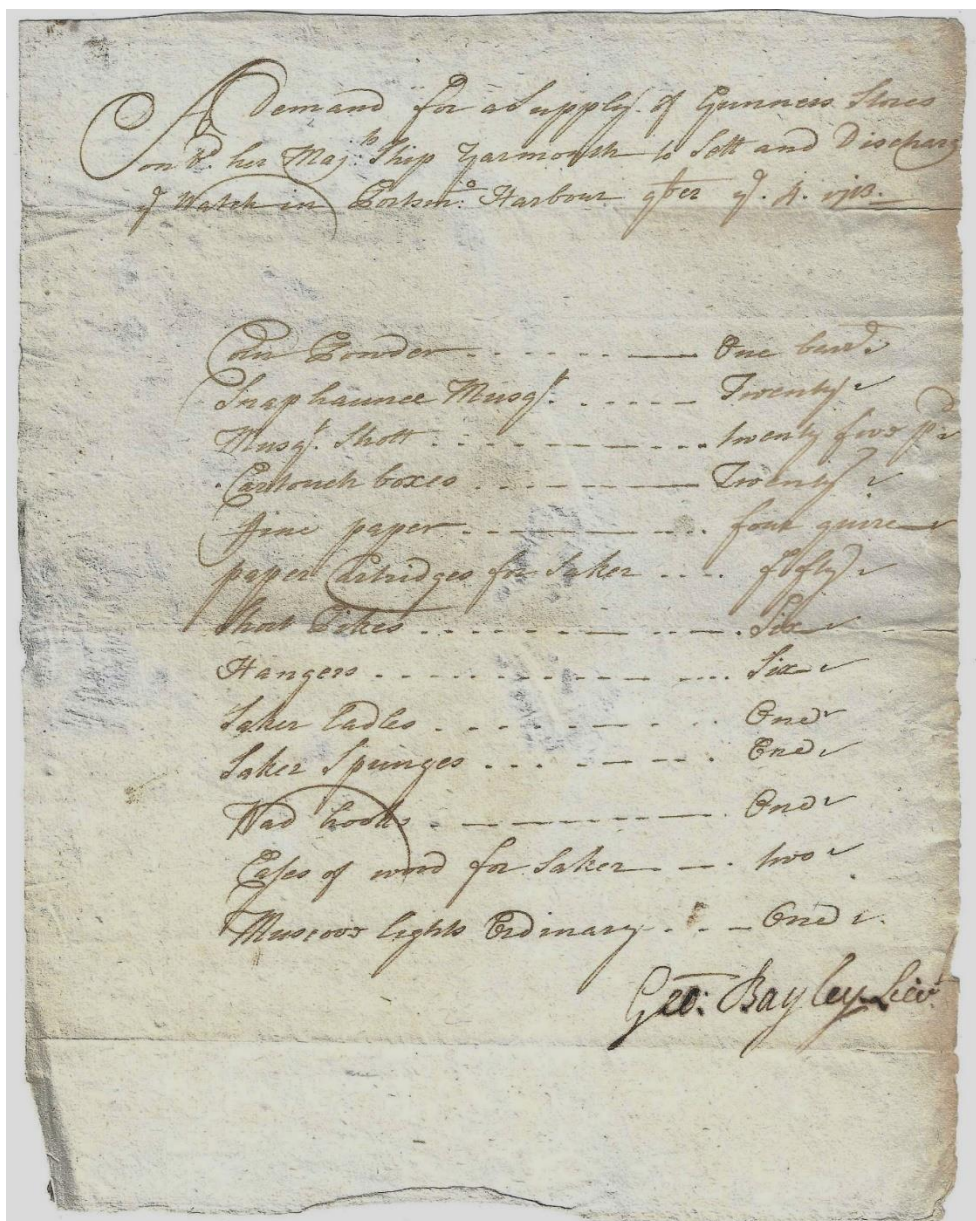 A Demand for a Supply of Gunners Stores
on bd. her Maj:ts Ship Yarmouth to Sett and Discharg
ye Watch in Portsmo. Harbour 9ber ye. 4.
Corn Powder - - - - - - One barrl.
Snaphaunce Musqts. - - - - Twenty
Musqt. Shott - - - - - - twenty five pd
Cartouch boxes - - - - - - Twenty
fine paper - - - - - - four quire
paper Cartridges for Saker - - - - fifty
Short Pikes - - - - - - Six
Hangers - - - - - - Six
Saker Ladles - - - - - - One
Saker Spunges - - - - - - One
Wad hooks - - - - - - One
Cases of wood for Saker - - - two
Muscovo lights Ordinary - - - One
Geo: Bayley Lieut.